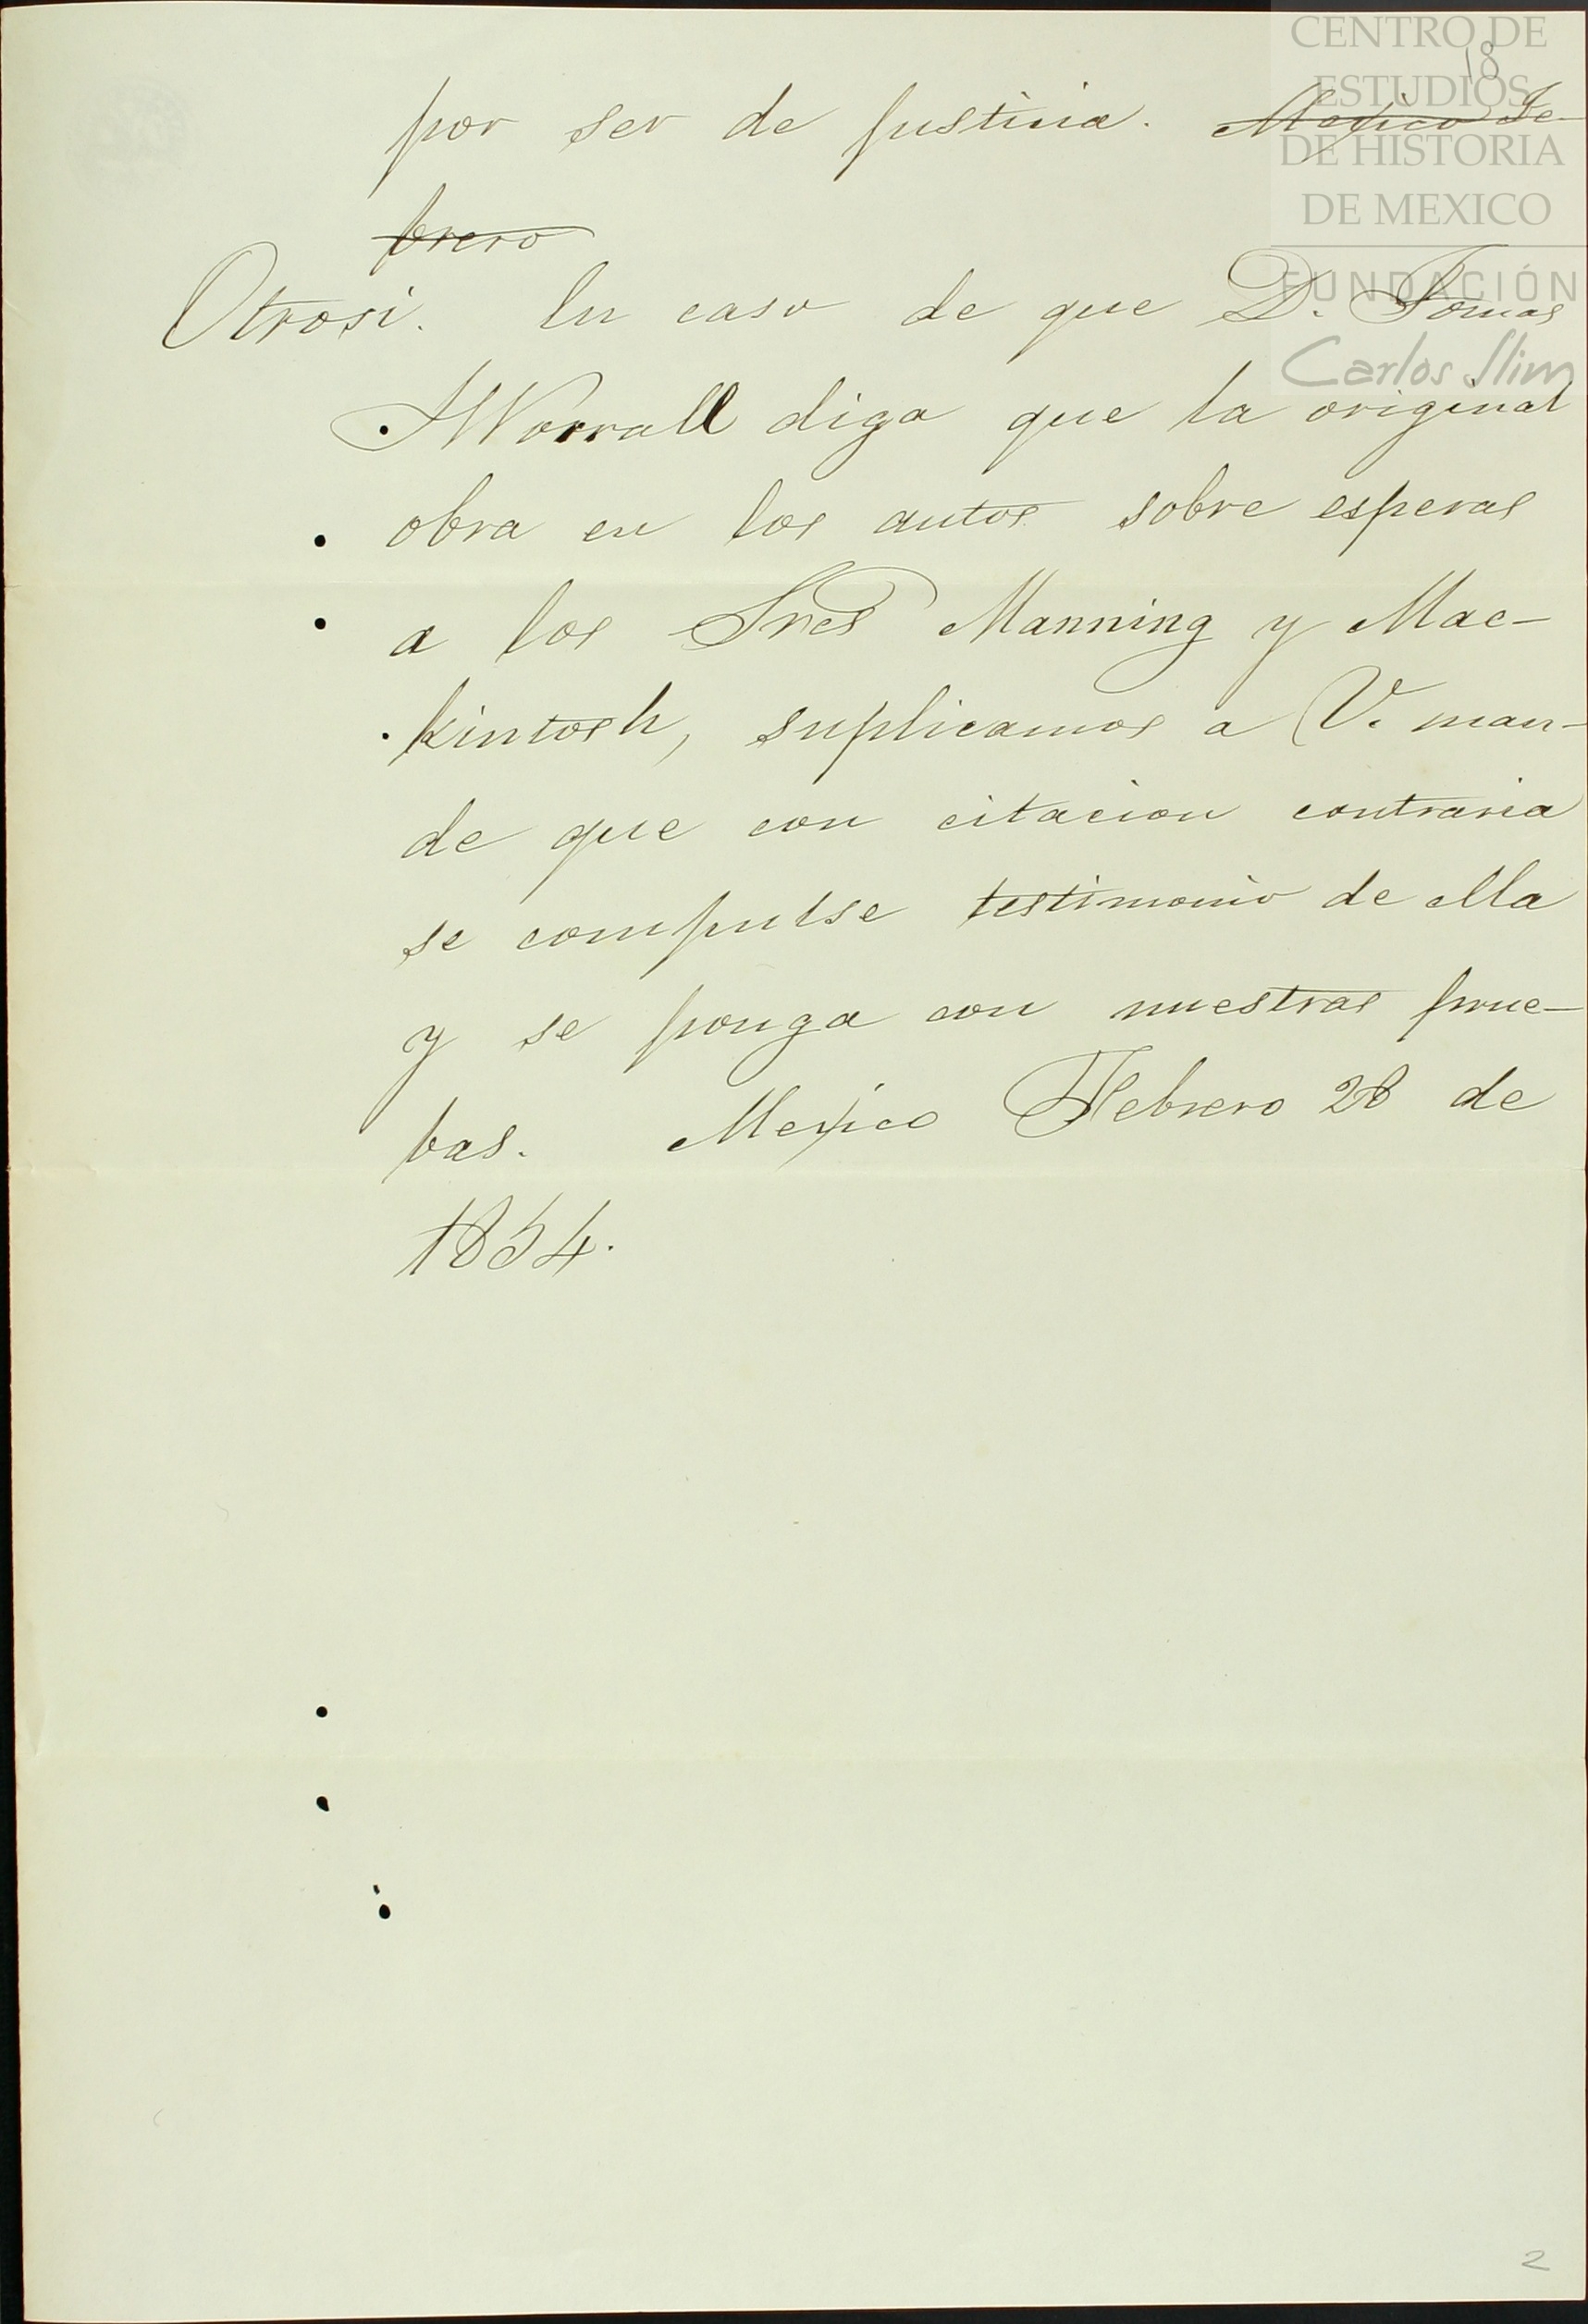 CENTRO DE
ESTUDIOS
DE HISTORIA
DE MEXICO
FUNDACIÓN
Carlos Slim
18
por ser de justicia. Mejico Fe-
brero
Otrosi. En caso de que D. Tomas
Worrall diga que la original
obra en los autos sobre esperas
a los Sres Manning y Mac-
kintosh, suplicamos a V. man-
de que con citacion contraria
se compulse testimonio de ella
y se ponga con nuestras prue-
bas. Mejico Febrero 28 de
1854.
2